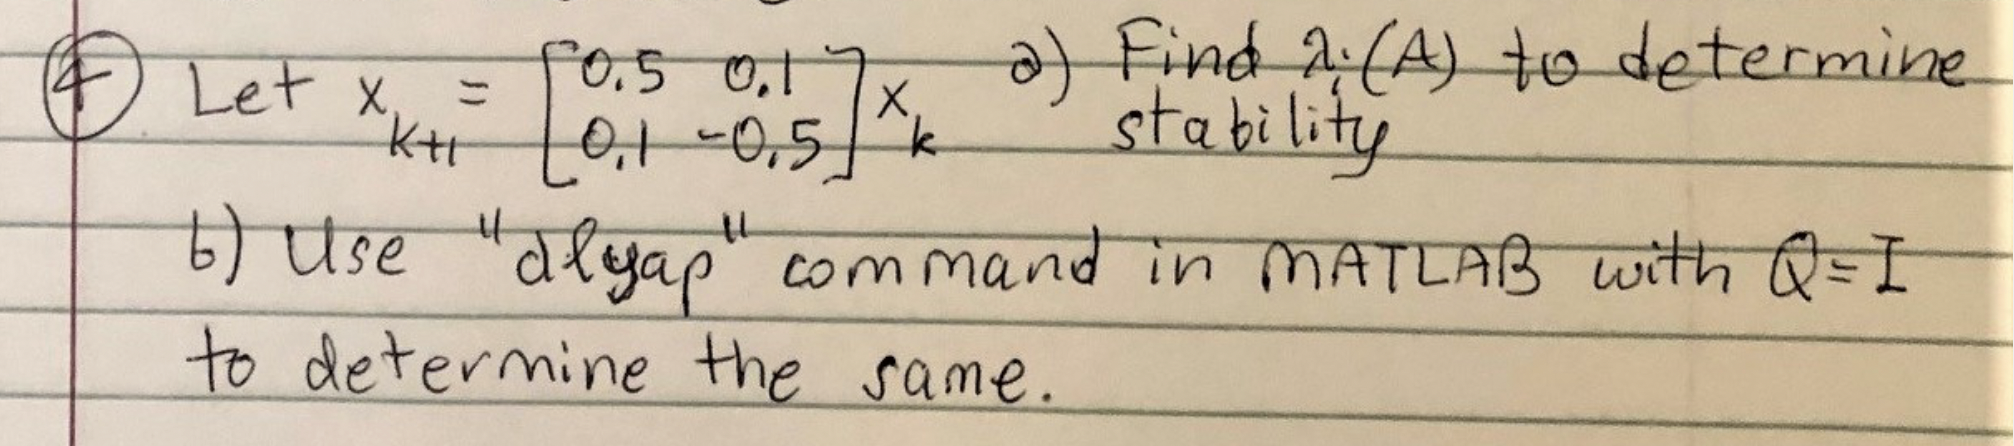 ④ Let x_{k+1} = [0.5 0.1; 0.1 -0.5] x_k a) Find λ_i(A) to determine
stability
b) Use "dlyap" command in MATLAB with Q=I
to determine the same.